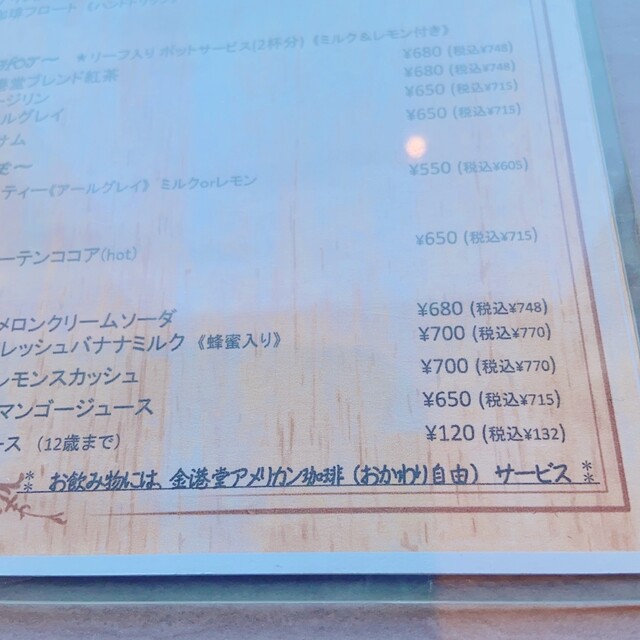 珈琲フロート 《ハンドドリップ》
＊リーフ入りポットサービス(2杯分)《ミルク＆レモン付き》
港堂ブレンド紅茶 ¥680 (税込¥748)
ージリン ¥680 (税込¥748)
ールグレイ ¥650 (税込¥715)
サム ¥650 (税込¥715)
ティー《アールグレイ》 ミルクorレモン ¥550 (税込¥605)
ーテンココア(hot) ¥650 (税込¥715)
メロンクリームソーダ ¥680 (税込¥748)
レッシュバナナミルク 《蜂蜜入り》 ¥700 (税込¥770)
レモンスカッシュ ¥700 (税込¥770)
マンゴージュース ¥650 (税込¥715)
ース (12歳まで) ¥120 (税込¥132)
＊ お飲み物には、金港堂アメリカン珈琲 (おかわり自由) サービス ＊